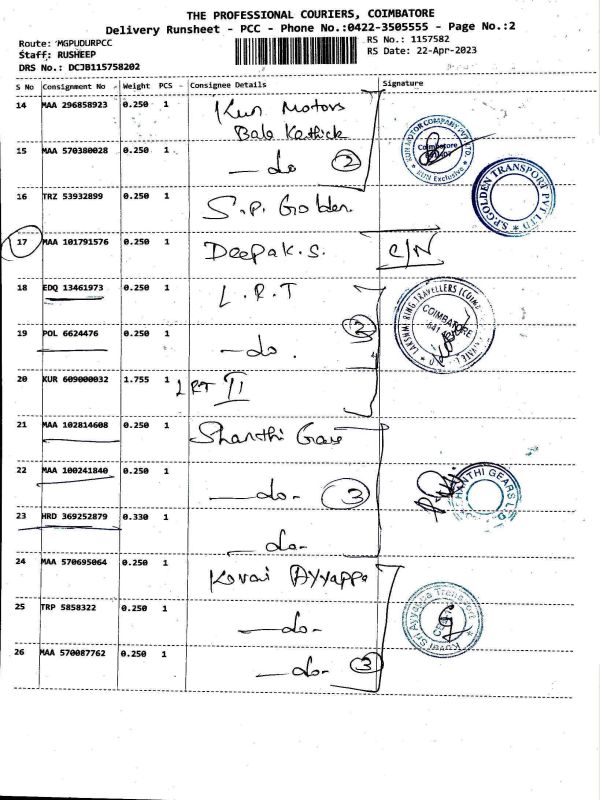 THE PROFESSIONAL COURIERS, COIMBATORE
Delivery Runsheet - PCC - Phone No.:0422-3505555 - Page No.:2
Route: MGPUDURPCC
Staff: RUSHEEP
DRS No.: DCJB115758202
RS No.: 1157582
RS Date: 22-Apr-2023
S No Consignment No Weight PCS Consignee Details Signature
14 MAA 296858923 0.250 1 Kun Motors
Bala Karthick
15 MAA 570380028 0.250 1 - do 2
KUN MOTOR COMPANY PVT LTD.
Coimbatore
* KUN Exclusive *
16 TRZ 53932899 0.250 1 S.P. Golden.
S.P.GOLDEN TRANSPORT PVT LTD *
17 MAA 101791576 0.250 1 Deepak.S. C/N
18 EDQ 13461973 0.250 1 L.R.T
19 POL 6624476 0.250 1 - do. 3
COIMBATORE
20 KUR 609000032 1.755 1 LRT II
21 MAA 102814608 0.250 1 Shanthi Gears
22 MAA 100241840 0.250 1 - do - 3
SHANTHI GEARS L
23 HRD 369252879 0.330 1 - do -
24 MAA 570695064 0.250 1 Kovai Ayyappa
25 TRP 5858322 0.250 1 - do -
Kovai Sri Ayyappa Transport *
26 MAA 570087762 0.250 1 - do - 3